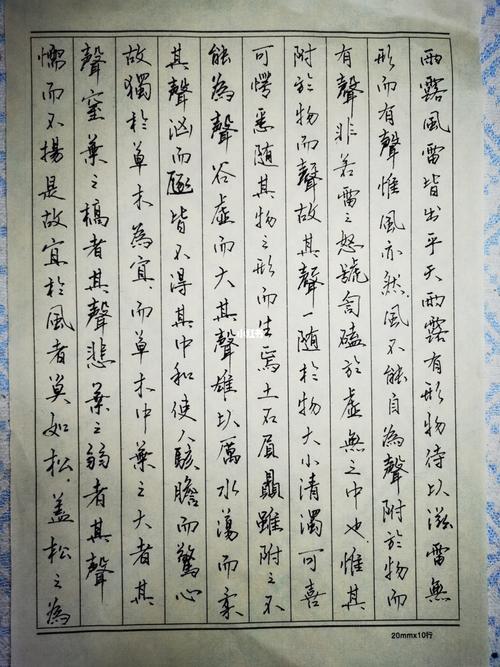 雨露風雷皆出乎天雨露有形物待以滋雷無
形而有聲惟風亦然風不能自為聲附於物而
有聲非若雷之怒號訇磕於虛無之中也惟其
附於物而聲故其聲一随於物大小清濁可喜
可愕悉随其物之形而生焉土石屓贔雖附之不
能為聲谷虛而大其聲雄以厲水蕩而柔
其聲洶而豗皆不得其中和使人駭膽而驚心
故獨於草木為宜而草木中葉之大者其
聲窒葉之槁者其聲悲葉之弱者其聲
懦而不揚是故宜於風者莫如松蓋松之為
20mmx10行
小红书